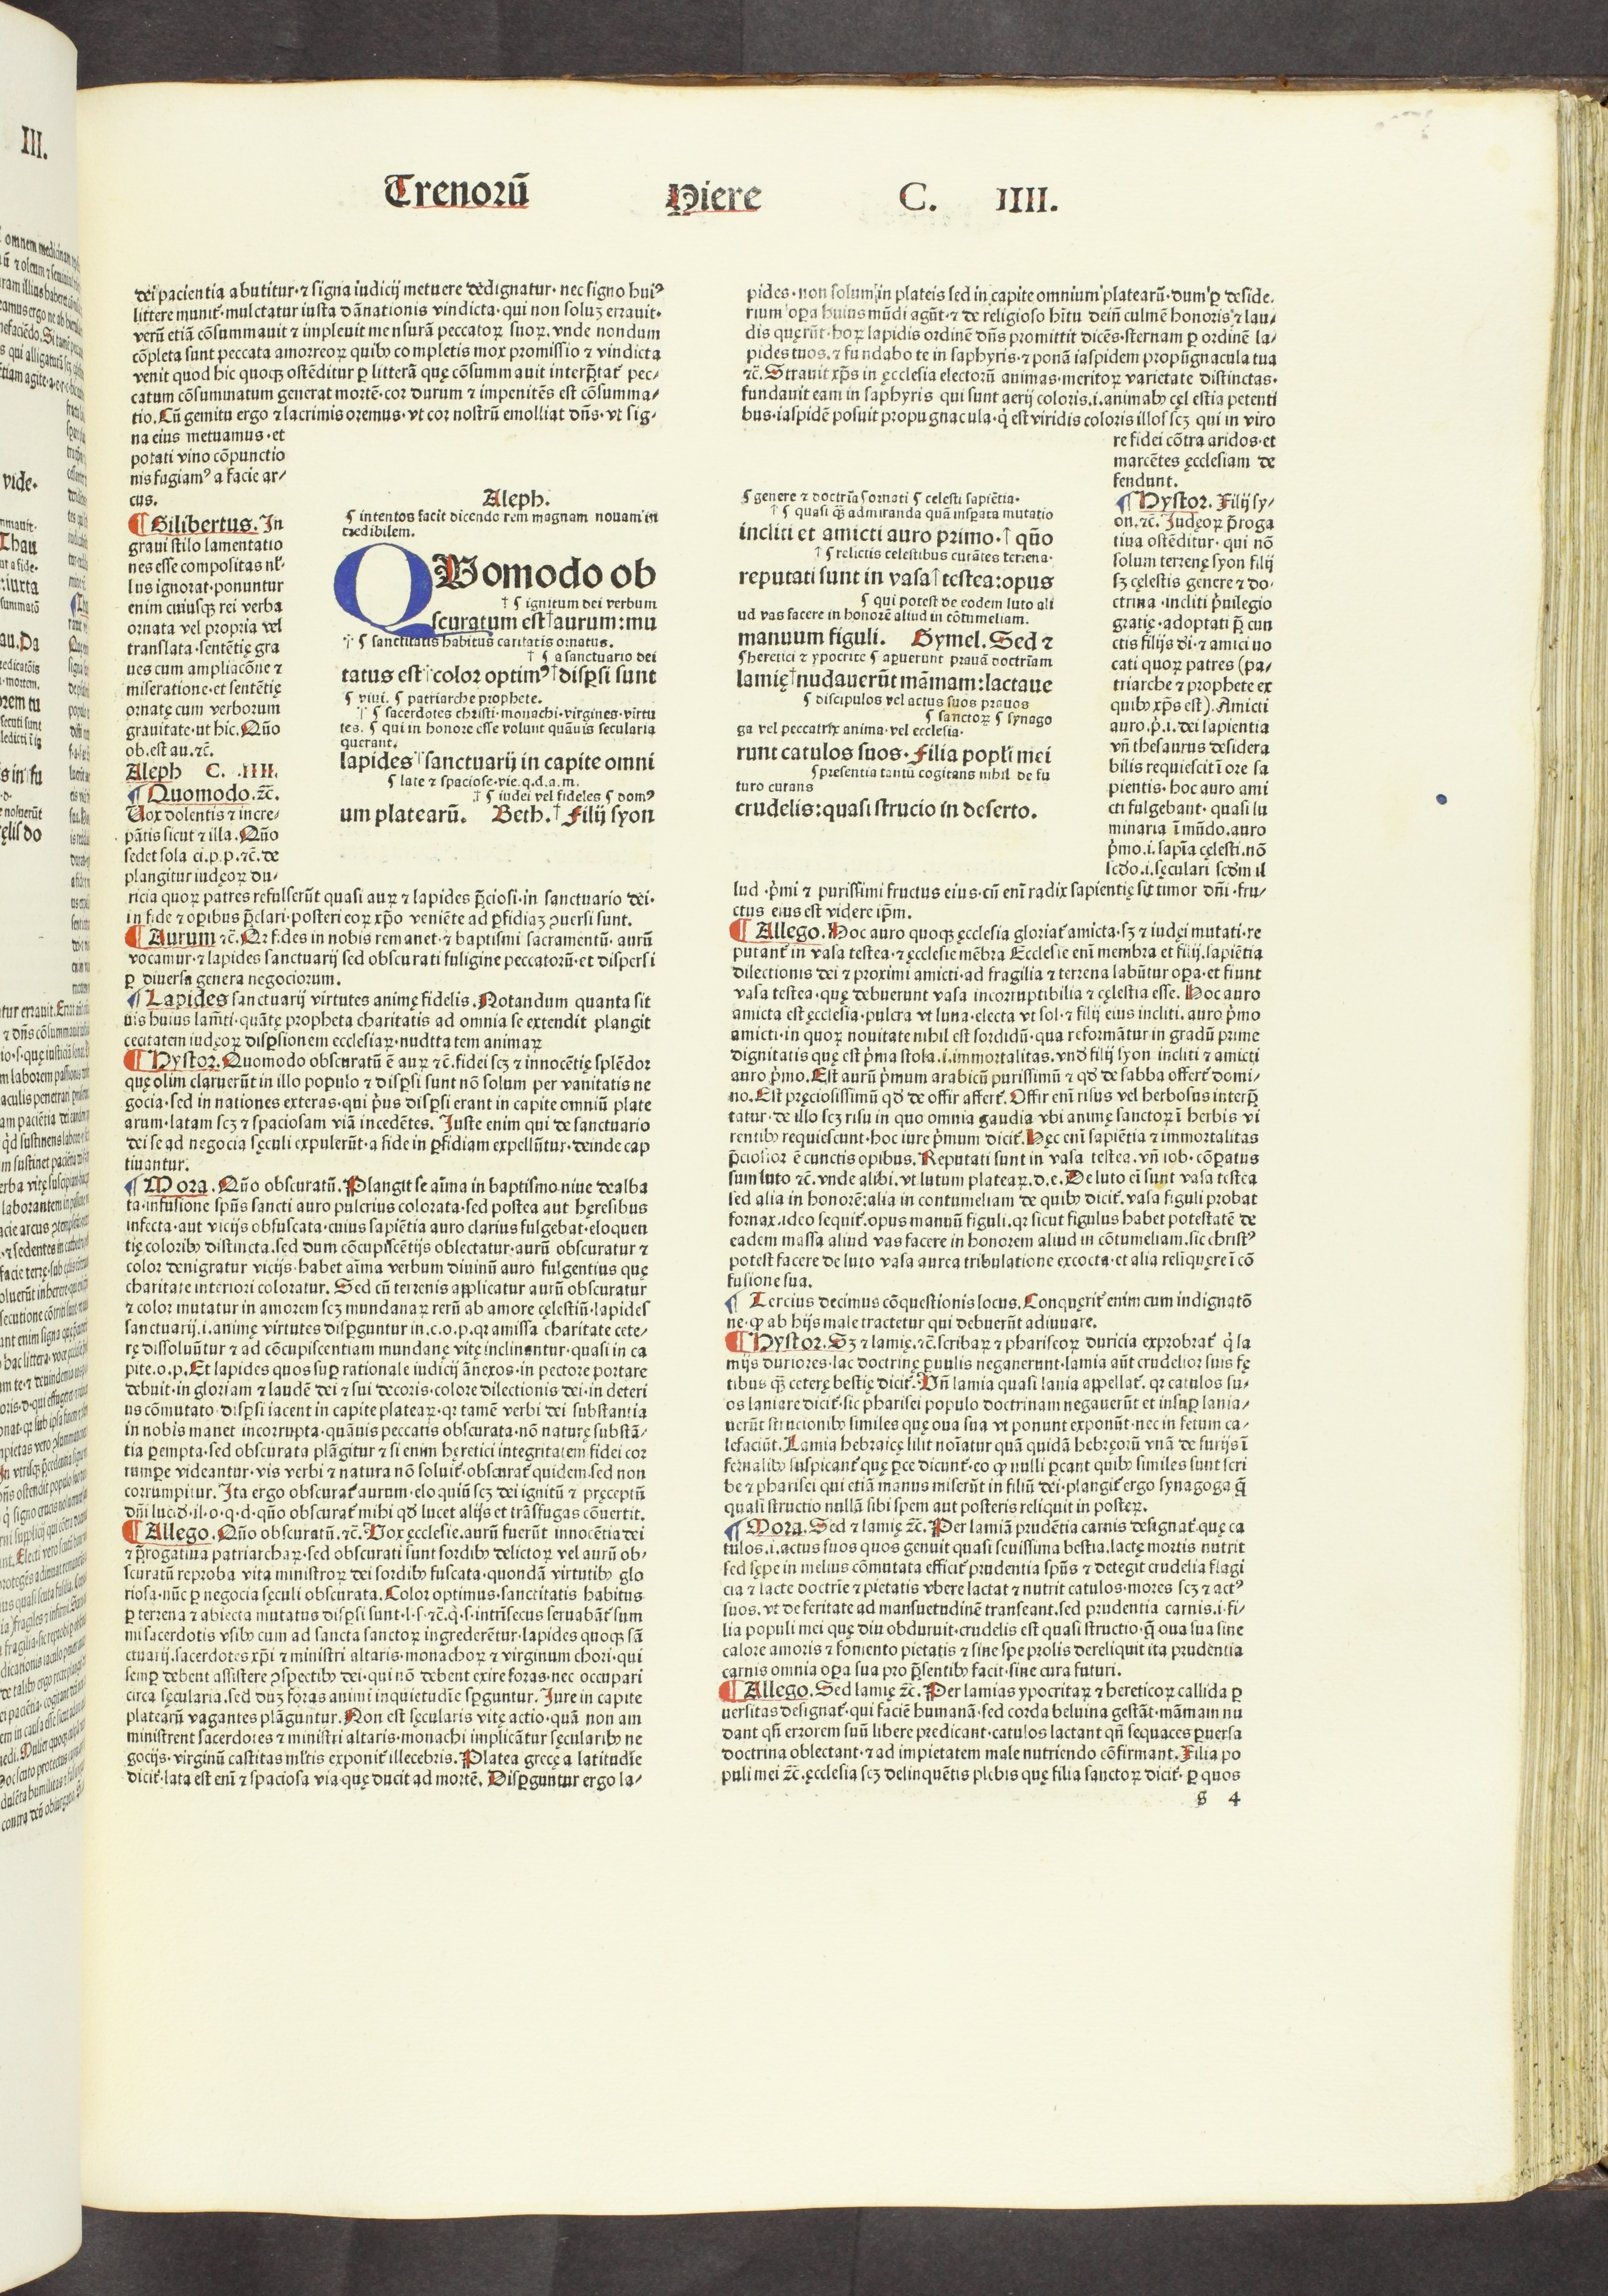 Trenorū Hiere C. IIII.
dei pacientia abutitur·⁊ signa iudicij metuere dedignatur·nec signo huiꝰ
littere munit᷑·mulctatur iusta dānationis vindicta·qui non soluʒ errauit·
verū etiā cōsummauit ⁊ impleuit mensurā peccatoꝝ suoꝝ.vnde nondum
cōpleta sunt peccata amorreoꝝ quibꝰ completis mox promissio ⁊ vindicta
venit quod hic quoqꝫ ostēditur ꝑ litterā quę cōsummauit interp̄tat᷑ pec/
catum cōsummatum generat mortē·cor durum ⁊ impenitēs est cōsumma/
tio.Cū gemitu ergo ⁊ lacrimis oremus·vt cor nostrū emolliat dn̄s·vt sig/
na eius metuamus·et
potati vino cōpunctio
nis fugiamꝰ a facie ar/
cus.
¶ Gilibertus. In
graui stilo lamentatio
nes esse compositas nl̄/
lus ignorat·ponuntur
enim cuiusqꝫ rei verba
ornata vel propria vel
translata·sentētię gra
ues cum ampliacōne ⁊
miseratione·et sentētię
ornatę cum verborum
grauitate·ut hic.Quō
ob.est au.⁊c̄.
Aleph C. .IIII.
¶ Quomodo.⁊c̄.
Uox dolentis ⁊ incre/
pātis sicut ⁊ illa.Quō
sedet sola ci.p.p.⁊c̄.de
plangitur iudęoꝝ du/
Aleph.
¶ intentos facit dicendo rem magnam nouam in
credibilem.
QUomodo ob
† ¶ ignitum dei verbum
scuratum est†aurum:mu
† ¶ sanctitatis habitus caritatis ornatus.
† ¶ a sanctuario dei
tatus est†color optimꝰ†disp̱si sunt
¶ viui. ¶ patriarche prophete.
† ¶ sacerdotes christi·monachi·virgines·virtu
tes. ¶ qui in honore esse volunt quāuis secularia
querant.
lapides†sanctuarij in capite omni
¶ late ⁊ spaciose·vie.q.d.a.m.
† ¶ iudei vel fideles ¶ domꝰ
um platearū. Beth.† Filij syon
ricia quoꝝ patres refulserūt quasi auꝝ ⁊ lapides p̄ciosi·in sanctuario dei·
in fide ⁊ oꝑibus p̄clari·posteri eoꝝ xp̄o veniēte ad ꝑfidiaʒ ꝯuersi sunt.
¶ Aurum ⁊c̄.Qꝛ fides in nobis remanet·⁊ baptismi sacramentū· aurū
vocamur·⁊ lapides sanctuarij sed obscurati fuligine peccatorū·et dispersi
ꝑ diuersa genera negociorum.
¶ Lapides sanctuarij virtutes animę fidelis.Notandum quanta sit
uis huius lam̄ti·quāte propheta charitatis ad omnia se extendit plangit
cecitatem iudęoꝝ disꝑsionem ecclesiaꝝ·nuditatem animaꝝ
¶ Hystor.Quomodo obscuratū ē auꝝ ⁊c̄.fidei scʒ ⁊ innocētię splēdor
quę olim claruerūt in illo populo ⁊ disꝑsi sunt nō solum per vanitatis ne
gocia·sed in nationes exteras·qui p̄us disꝑsi erant in capite omniū plate
arum·latam scʒ ⁊ spaciosam viā incedētes. Juste enim qui de sanctuario
dei se ad negocia sęculi expulerūt·a fide in ꝑfidiam expellūtur·deinde cap
tiuantur.
¶ Mora. Quō obscuratū. Plangit se aīma in baptismo niue dealba
ta·infusione spūs sancti auro pulcrius colorata·sed postea aut hęresibus
infecta·aut vicijs obfuscata·cuius sapiētia auro clarius fulgebat·eloquen
tię coloribꝰ distincta.sed dum cōcupiscētijs oblectatur·aurū obscuratur ⁊
color denigratur vicijs·habet aīma verbum diuinū auro fulgentius quę
charitate interiori coloratur. Sed cū terrenis applicatur aurū obscuratur
⁊ color mutatur in amorem scʒ mundanaꝝ rerū ab amore cęlestiū·lapides
sanctuarij.i.animę virtutes disꝑguntur in.c.o.p.qꝛ amissa charitate cete/
rę dissoluūtur ⁊ ad cōcupiscentiam mundanę vitę inclinantur·quasi in ca
pite.o.p.Et lapides quos suꝑ rationale iudicij ānexos·in pectore portare
debuit·in gloriam ⁊ laudē dei ⁊ sui decoris·colore dilectionis dei·in deteri
us cōmutato·disꝑsi iacent in capite plateaꝝ·qꝛ tamē verbi dei substantia
in nobis manet incorrupta·quāuis peccatis obscurata·nō naturę substā/
tia ꝑempta·sed obscurata plāgitur ⁊ si enim hęretici integritatem fidei cor
rumꝑe videantur·vis verbi ⁊ natura nō soluit᷑·obscurat᷑ quidem·sed non
corrumpitur. Ita ergo obscurat᷑ aurum·eloquiū scʒ dei ignitū ⁊ pręceptū
dn̄i lucd̄·il·o·q·d·quō obscurat᷑ mihi qd̄ lucet alijs·et trāsfugas cōuertit.
¶ Allego. Quō obscuratū.⁊c̄. Vox ęcclesie.aurū fuerūt innocētia dei
⁊ p̄rogatiua patriarchaꝝ·sed obscurati sunt sordibꝰ delictoꝝ vel aurū ob/
scuratū reproba vita ministroꝝ dei sordibꝰ fuscata·quondā virtutibꝰ glo
riosa·nūc ꝑ negocia sęculi obscurata. Color optimus·sanctitatis habitus
ꝑ terrena ⁊ abiecta mutatus disꝑsi sunt·l·s·⁊c̄.q̄·s·intrīsecus seruabāt᷑ sum
mi sacerdotis vsibꝰ cum ad sancta sanctoꝝ ingrederētur·lapides quoqꝫ sā
ctuarij.sacerdotes xp̄i ⁊ ministri altaris·monachoꝝ ⁊ virginum chori·qui
semꝑ debent assistere ꝯspectibꝰ dei·qui nō debent exire foras·nec occupari
circa sęcularia.sed duʒ foras animi inquietudīe sꝑguntur. Jure in capite
platearū vagantes plāguntur. Non est sęcularis vitę actio·quā non am
ministrent sacerdotes ⁊ ministri altaris·monachi implicātur sęcularibꝰ ne
gocijs·virginū castitas ml̄tis exponit᷑ illecebris. Platea grecę a latitudīe
dicit᷑·lata est enī ⁊ spaciosa via quę ducit ad mortē. Disꝑguntur ergo la/
pides·non solum in plateis sed in capite omnium platearū·dum ꝑ deside.
rium oꝑa huius mūdi agūt·⁊ de religioso hītu dein̄ culmē honoris ⁊ lau/
dis quęrūt·hoꝝ lapidis ordinē dn̄s promittit dicēs·sternam ꝑ ordinē la/
pides tuos.⁊ fundabo te in saphyris·⁊ ponā iaspidem propūgnacula tua
⁊c̄. Strauit xp̄s in ęcclesia electorū animas·meritoꝝ varietate distinctas·
fundauit eam in saphyris qui sunt aerij coloris.i.animabꝰ cęlestia petenti
bus·iaspidē posuit propugnacula·q̄ est viridis coloris illos scʒ qui in viro
re fidei cōtra aridos·et
marcētes ęcclesiam de
fendunt.
¶ genere ⁊ doctrīa ¶ ornati ¶ celesti sapiētia·
† ¶ quasi q̄ admiranda quā insꝑata mutatio
incliti et amicti auro primo·† quō
† ¶ relictis celestibus curātes terrena·
reputati sunt in vasa†testea:opus
¶ qui potest de eodem luto ali
ud vas facere in honorē aliud in cōtumeliam.
manuum figuli. Gymel. Sed ⁊
¶ heretici ⁊ ypocrite ¶ aꝑuerunt prauā doctrīam
lamię†nudauerūt māmam:lactaue
¶ discipulos vel actus suos prauos
¶ sanctoꝝ ¶ synago
ga vel peccatrix anima·vel ecclesia·
runt catulos suos· Filia popl̄i mei
¶ presentia tantū cogitans nihil de fu
turo curans
crudelis:quasi strucio in deserto.
¶ Hystor. Filij sy/
on.⁊c̄. Judęoꝝ p̄roga
tiua ostēditur·qui nō
solum terrenę syon filij
sʒ cęlestis genere ⁊ do·
ctrina·incliti p̄uilegio
gratię·adoptati p̄ cun
ctis filijs d̄i·⁊ amici uo
cati quoꝝ patres (pa/
triarche ⁊ prophete ex
quibꝰ xp̄s est). Amicti
auro.p̄.i.dei sapientia
vn̄ thesaurus desidera
bilis requiescit ī ore sa
pientis·hoc auro ami
cti fulgebant·quasi lu
minaria ī mūdo.auro
p̄mo.i.sapīa cęlesti.nō
scd̄o.i.sęculari scd̄m il
lud ·p̄mi ⁊ purissimi fructus eius·cū enī radix sapientię sit timor dn̄i·fru/
ctus eius est videre ip̄m.
¶ Allego. Hoc auro quoqꝫ ęcclesia gloriat᷑ amicta·sʒ ⁊ iudęi mutati·re
putant᷑ in vasa testea·⁊ ęcclesie mēbra Ecclesie enī membra et filij.sapiētia
dilectionis dei ⁊ proximi amicti·ad fragilia ⁊ terrena labūtur oꝑa·et fiunt
vasa testea·quę debuerunt vasa incorruptibilia ⁊ cęlestia esse. Hoc auro
amicta est ęcclesia·pulcra vt luna·electa vt sol·⁊ filij eius incliti.auro p̄mo
amicti·in quoꝝ nouitate nihil est sordidū·qua reformātur in gradū prime
dignitatis quę est p̄ma stola.i.immortalitas.vnd̄ filij syon incliti ⁊ amicti
auro p̄mo. Est aurū p̄mum arabicū purissimū ⁊ qd̄ de sabba offert᷑ domi/
no. Est pręciosissimū qd̄ de offir affert᷑. Offir enī risus vel herbosus interp̄
tatur·de illo scʒ risu in quo omnia gaudia vbi animę sanctoꝝ ī herbis vi
rentibꝰ requiescunt·hoc iure p̄mum dicit᷑. Hęc enī sapiētia ⁊ immortalitas
p̄ciosior ē cunctis opibus. Reputati sunt in vasa testea.vn̄ iob·cōꝑatus
sum luto ⁊c̄.vnde alibi.vt lutum plateaꝝ.d.e. De luto ei sunt vasa testea
sed alia in honorē:alia in contumeliam de quibꝰ dicit᷑.vasa figuli probat
fornax.ideo sequit᷑.opus manuū figuli.qꝛ sicut figulus habet potestatē de
eadem massa aliud vas facere in honorem aliud in cōtumeliam.sic christꝰ
potest facere de luto vasa aurea tribulatione excocta·et alia relīquere ī cō
fusione sua.
¶ Tercius decimus cōquestionis locus. Conquęrit᷑ enim cum indignatō
ne·ꝙ ab hijs male tractetur qui debuerūt adiuuare.
¶ Hystor. Sʒ ⁊ lamię.⁊c̄.scribaꝝ ⁊ phariseoꝝ duricia exprobrat᷑ q̄ la
mijs duriores·lac doctrinę ꝑuulis negauerunt·lamia aūt crudelior suis fę
tibus q̄ꝫ ceterę bestię dicit᷑. Vn̄ lamia quasi lania appellat᷑. qꝛ catulos su/
os laniare dicit᷑·sic pharisei populo doctrinam negauerūt et insuꝑ lania/
uerūt strucionibꝰ similes quę oua sua vt ponunt exponūt·nec in fetum ca/
lefaciūt. Lamia hebraicę lilit noīatur quā quidā hebręorū vnā de furijs ī
fernalibꝰ suspicant᷑ quę ꝑce dicunt᷑·eo ꝙ nulli ꝑcant quibꝰ similes sunt scri
be ⁊ pharisei qui etiā manus miserūt in filiū dei·plangit᷑ ergo synagoga q̄
quasi structio nullā sibi spem aut posteris reliquit in posteꝝ.
¶ Mora. Sed ⁊ lamię ⁊c̄. Per lamiā prudētia carnis designat᷑ quę ca
tulos.i.actus suos quos genuit quasi seuissima bestia·lactę mortis nutrit
sed sępe in melius cōmutata efficit᷑ prudentia spūs ⁊ detegit crudelia flagi
cia ⁊ lacte doctrīe ⁊ pietatis vbere lactat ⁊ nutrit catulos·mores scʒ ⁊ actꝰ
suos. vt de feritate ad mansuetudinē transeant·sed prudentia carnis.i.fi/
lia populi mei que diu obduruit·crudelis est quasi structio·q̄ oua sua sine
calore amoris ⁊ fomento pietatis ⁊ sine spe prolis dereliquit ita prudentia
carnis omnia oꝑa sua pro p̄sentibꝰ facit·sine cura futuri.
¶ Allego. Sed lamię ⁊c̄. Per lamias ypocritaꝝ ⁊ hereticoꝝ callida ꝑ
uersitas designat᷑·qui faciē humanā·sed corda beluina gestāt·māmam nu
dant qn̄ errorem suū libere predicant·catulos lactant qn̄ sequaces ꝑuersa
doctrina oblectant·⁊ ad impietatem male nutriendo cōfirmant. Filia po
puli mei ⁊c̄. ęcclesia scʒ delinquētis plebis quę filia sanctoꝝ dicit᷑·ꝑ quos
g 4